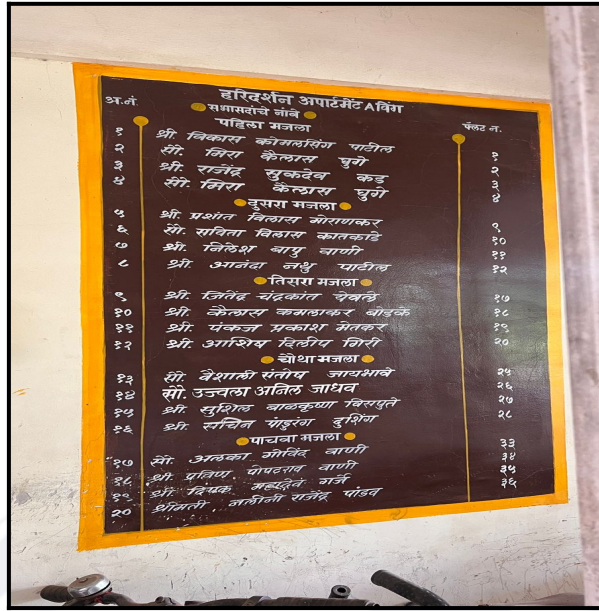 हरिदर्शन अपार्टमेंट A विंग
अ.नं. सभासदांचे नांवे फ्लॅट नं.
पहिला मजला
१ श्री विकास कोमलसिंग पाटील १
२ सौ. मिरा कैलास घुगे २
३ श्री. राजेंद्र सुकदेव कड ३
४ सौ. मिरा कैलास घुगे ४
दुसरा मजला
५ श्री. प्रशांत विलास मोराणकर ९
६ सौ. सविता विलास कातकाडे १०
७ श्री. निलेश बापु वाणी ११
८ श्री. आनंदा नथु पाटील १२
तिसरा मजला
९ श्री. जितेंद्र चंद्रकांत येवले १७
१० श्री कैलास कमलाकर बोडके १८
११ श्री. पंकज प्रकाश मेतकर १९
१२ श्री आशिष दिलीप गिरी २०
चौथा मजला
१३ सौ. वैशाली संतोष जायभावे २५
१४ सौ. उज्वला अनिल जाधव २६
१५ श्री. सुशिल बाळकृष्णा विसपुते २७
१६ श्री. सचिन पांडुरंग दुशिंग २८
पाचवा मजला
१७ सौ. अलका गोविंद वाणी ३३
१८ श्री प्रविण पोपटराव वाणी ३४
१९ श्री. दिपक महादेव गर्जे ३५
२० श्रीमती. नलीनी राजेंद्र पांडव ३६